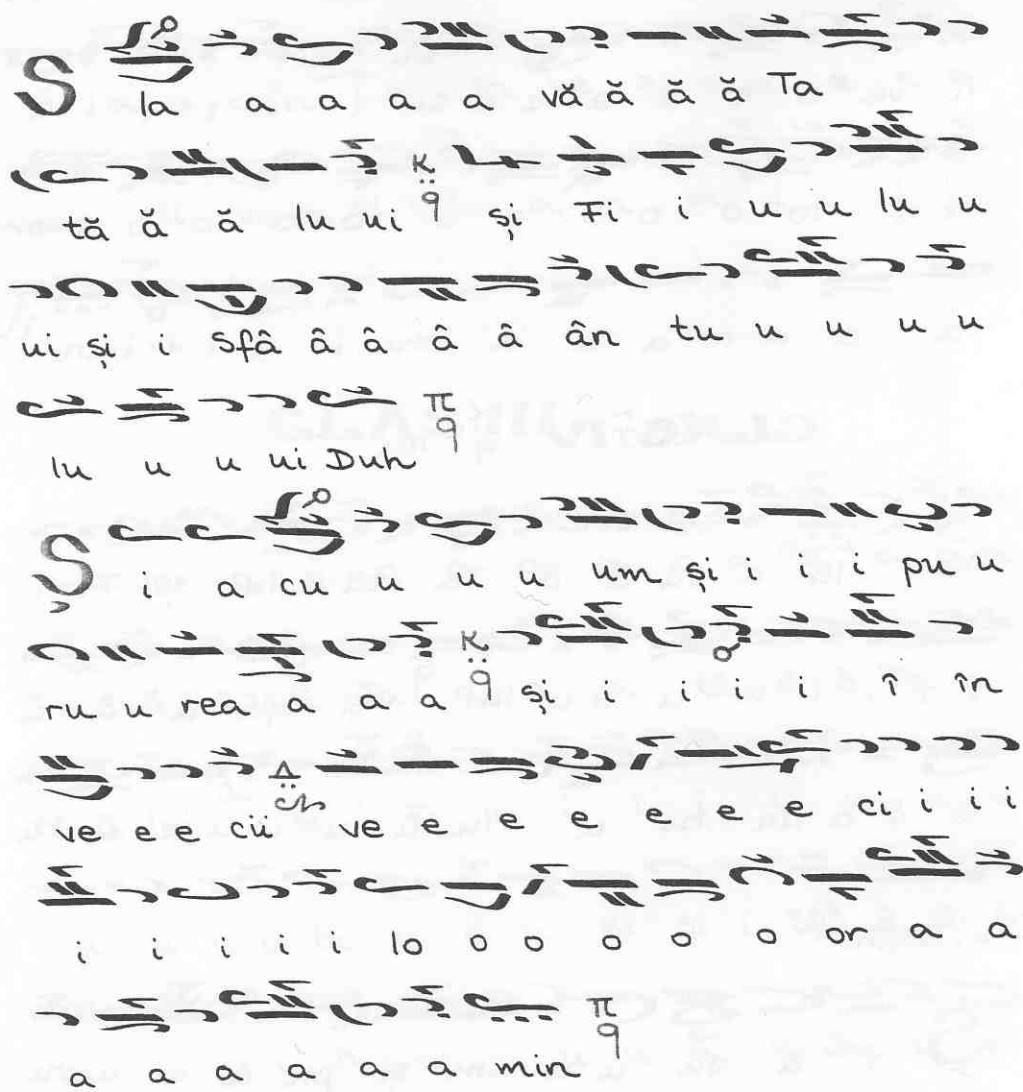 S la a a a a vă ă ă ă Ta
tă ă ă lu ui și Fi i u u lu u
ui și i Sfâ â â â â ân tu u u u u
lu u u ui Duh
Ș i a cu u u u um și i i i pu u
ru u rea a a a și i i i i î în
ve e e cii ve e e e e e e ci i i i
i i i i i lo o o o o o or a a
a a a a a a min